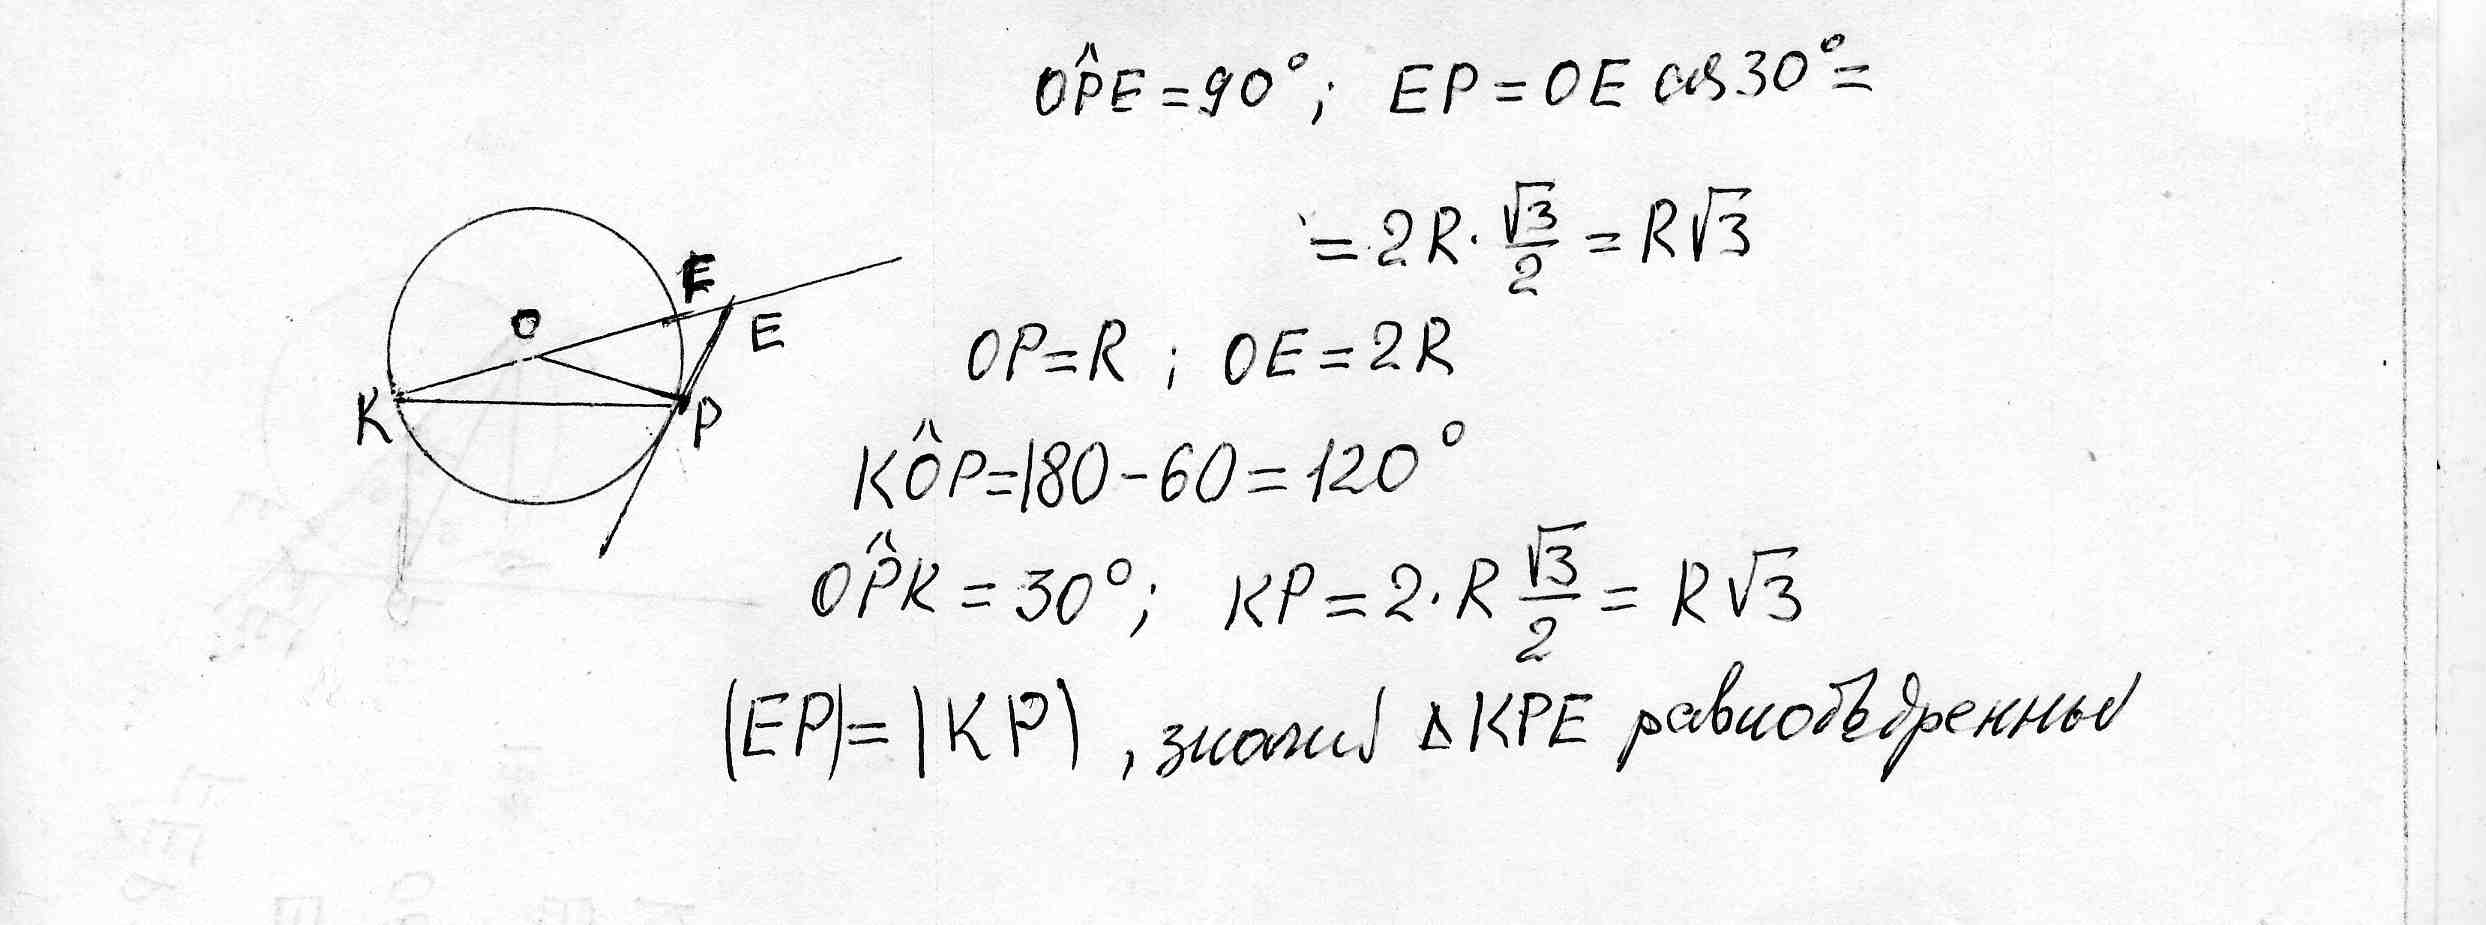 OP̂E = 90°; EP = OE cos 30° =
= 2R · √3/2 = R√3
F
O
E
K
P
OP = R ; OE = 2R
KÔP = 180 - 60 = 120°
OP̂K = 30°; KP = 2 · R √3/2 = R√3
|EP| = |KP|, значит ΔKPE равнобъдренный